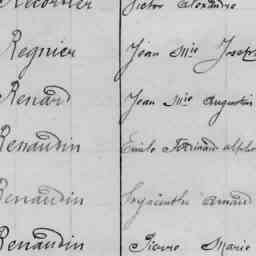 Victor Alexandre
Regnier Jean Mie Joseph
Renard Jean Mie Augustin
Renaudin Emile Ferdinand Alpho
Renaudin Hyacinthe Armand
Renaudin Pierre Marie